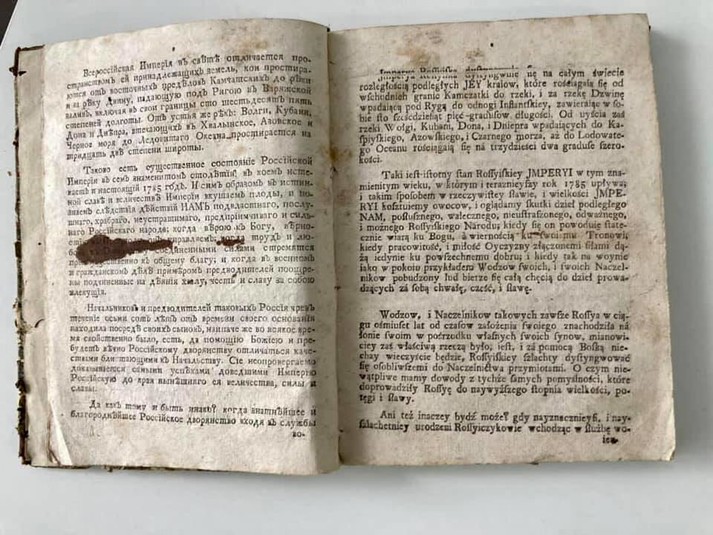 Всероссійская Имперія въ свѣтѣ отличается про-
странствомъ ей принадлежащихъ земель, кои простира-
ются отъ восточныхъ предѣловъ Камчатскихъ до рѣки
и за рѣку Двину, падающую подъ Ригою въ Варяжской
заливъ, включая въ свои границы сто шестьдесятъ пять
степеней долготы. Отъ устья же рѣкъ: Волги, Кубани,
Дона и Днѣпра, втекающихъ въ Хвалынское, Азовское и
Черное моря до Ледовитаго Океана простирается на
тридцать двѣ степени широты.
Таково есть существенное состояніе Россійской
Имперіи въ семъ знаменитомъ столѣтіи въ коемъ исте-
каетъ и настоящій 1785 годъ. И симъ образомъ въ истин-
ной славѣ и величествѣ Имперіи вкушаемъ плоды, и по-
знаемъ слѣдствія дѣйствій НАМЪ подвластнаго, послу-
шнаго, храбраго, неустрашимаго, предпріимчиваго и силь-
наго Россійскаго народа; когда вѣрою къ Богу, вѣрно-
управляемъ, когда трудъ и лю-
соединенными силами стремятся
къ общему благу; и когда въ военномъ
и гражданскомъ дѣлѣ примѣромъ предводителей поощре-
ны подчиненные на дѣянія хвалу, честь и славу за собою
влекущія.
Начальниковъ и предводителей таковыхъ Россія чрезъ
теченіе осьми сотъ лѣтъ отъ времяни своего основанія
находила посредѣ своихъ сыновъ, наипаче же во всякое время
свойственно было, есть, да помощію Божіею и пре-
будетъ вѣчно Россійскому дворянству отличаться каче-
ствами блистающими къ Начальству. Сіе неопровергаемо
доказывается самыми успѣхами доведшими Имперію
Россійскую до края нынѣшняго ея величества, силы и
славы.
Да какъ тому и быть инако? когда знатнѣйшее и
благороднѣйшее Россійское дворянство входя въ службы
во-
Imperya Rossyiska dystyngwuie się na całym świecie
rozległością podległych JEY kraiow, które rościągaią się od
wschodnich granic Kamczatki do rzeki, i za rzekę Dzwinę
wpadaiącą pod Rygą do odnogi Inflantskiey, zawieraiąc w so-
bie sto sześćdziesiąt pięć-gradusow długości. Od uyścia zaś
rzeki Wołgi, Kubani, Dona, i Dniepra wpadaiących do Kas-
pijyskiego, Azowskiego, i Czarnego morza, aż do Lodowate-
go Oceanu rościągaią się na trzydzieści dwa graduse szero-
kości.
Taki iest istotny stan Rossyiskiey JMPERYI w tym zna-
mienitym wieku, w którym i teraznieyszy rok 1785 upływa;
i takim sposobem w rzeczywistey sławie, i wielkości JMPE-
RYI kosztuiemy owocow, i oglądamy skutki dzieł podległego
NAM, posłusznego, walecznego, nieustraszonego, odważnego,
i możnego Rossyiskiego Narodu; kiedy się on powoduie state-
cznie wiarą ku Bogu, a wiernością ku Tronowi,
kiedy pracowitość, i miłość Oyczyzny złączonemi siłami dą-
żą iedynie ku powszechnemu dobru; i kiedy tak na woynie
iako w pokoiu przykładem Wodzow swoich, i swoich Naczel-
nikow pobudzony lud bierze się całą chęcią do dzieł prowa-
dzących za sobą chwałę, cześć, i sławę.
Wodzow, i Naczelnikow takowych zawsze Rossya w cią-
gu ośmiuset lat od czasow założenia swoiego znachodziła na
łonie swoim w pośrzodku własnych swoich synow, mianowi-
ciey zaś właściwą rzeczą było, iest, i za pomocą Boską nie-
chay wieczyście będzie, Rossyiskiey szlachty dystyngwować
się osobliwszemi do Naczelnictwa przymiotami. O czym nie-
wątpliwe maniy dowody z tychże samych pomyślności, które
doprowadziły Rossyę do naywyższego stopnia wielkości, po-
tęgi i sławy.
Ani też inaczey bydź może? gdy nayznacznieysi, i nay-
szlachetniey urodzeni Rossyiczykowie wchodząc w służbę wo-